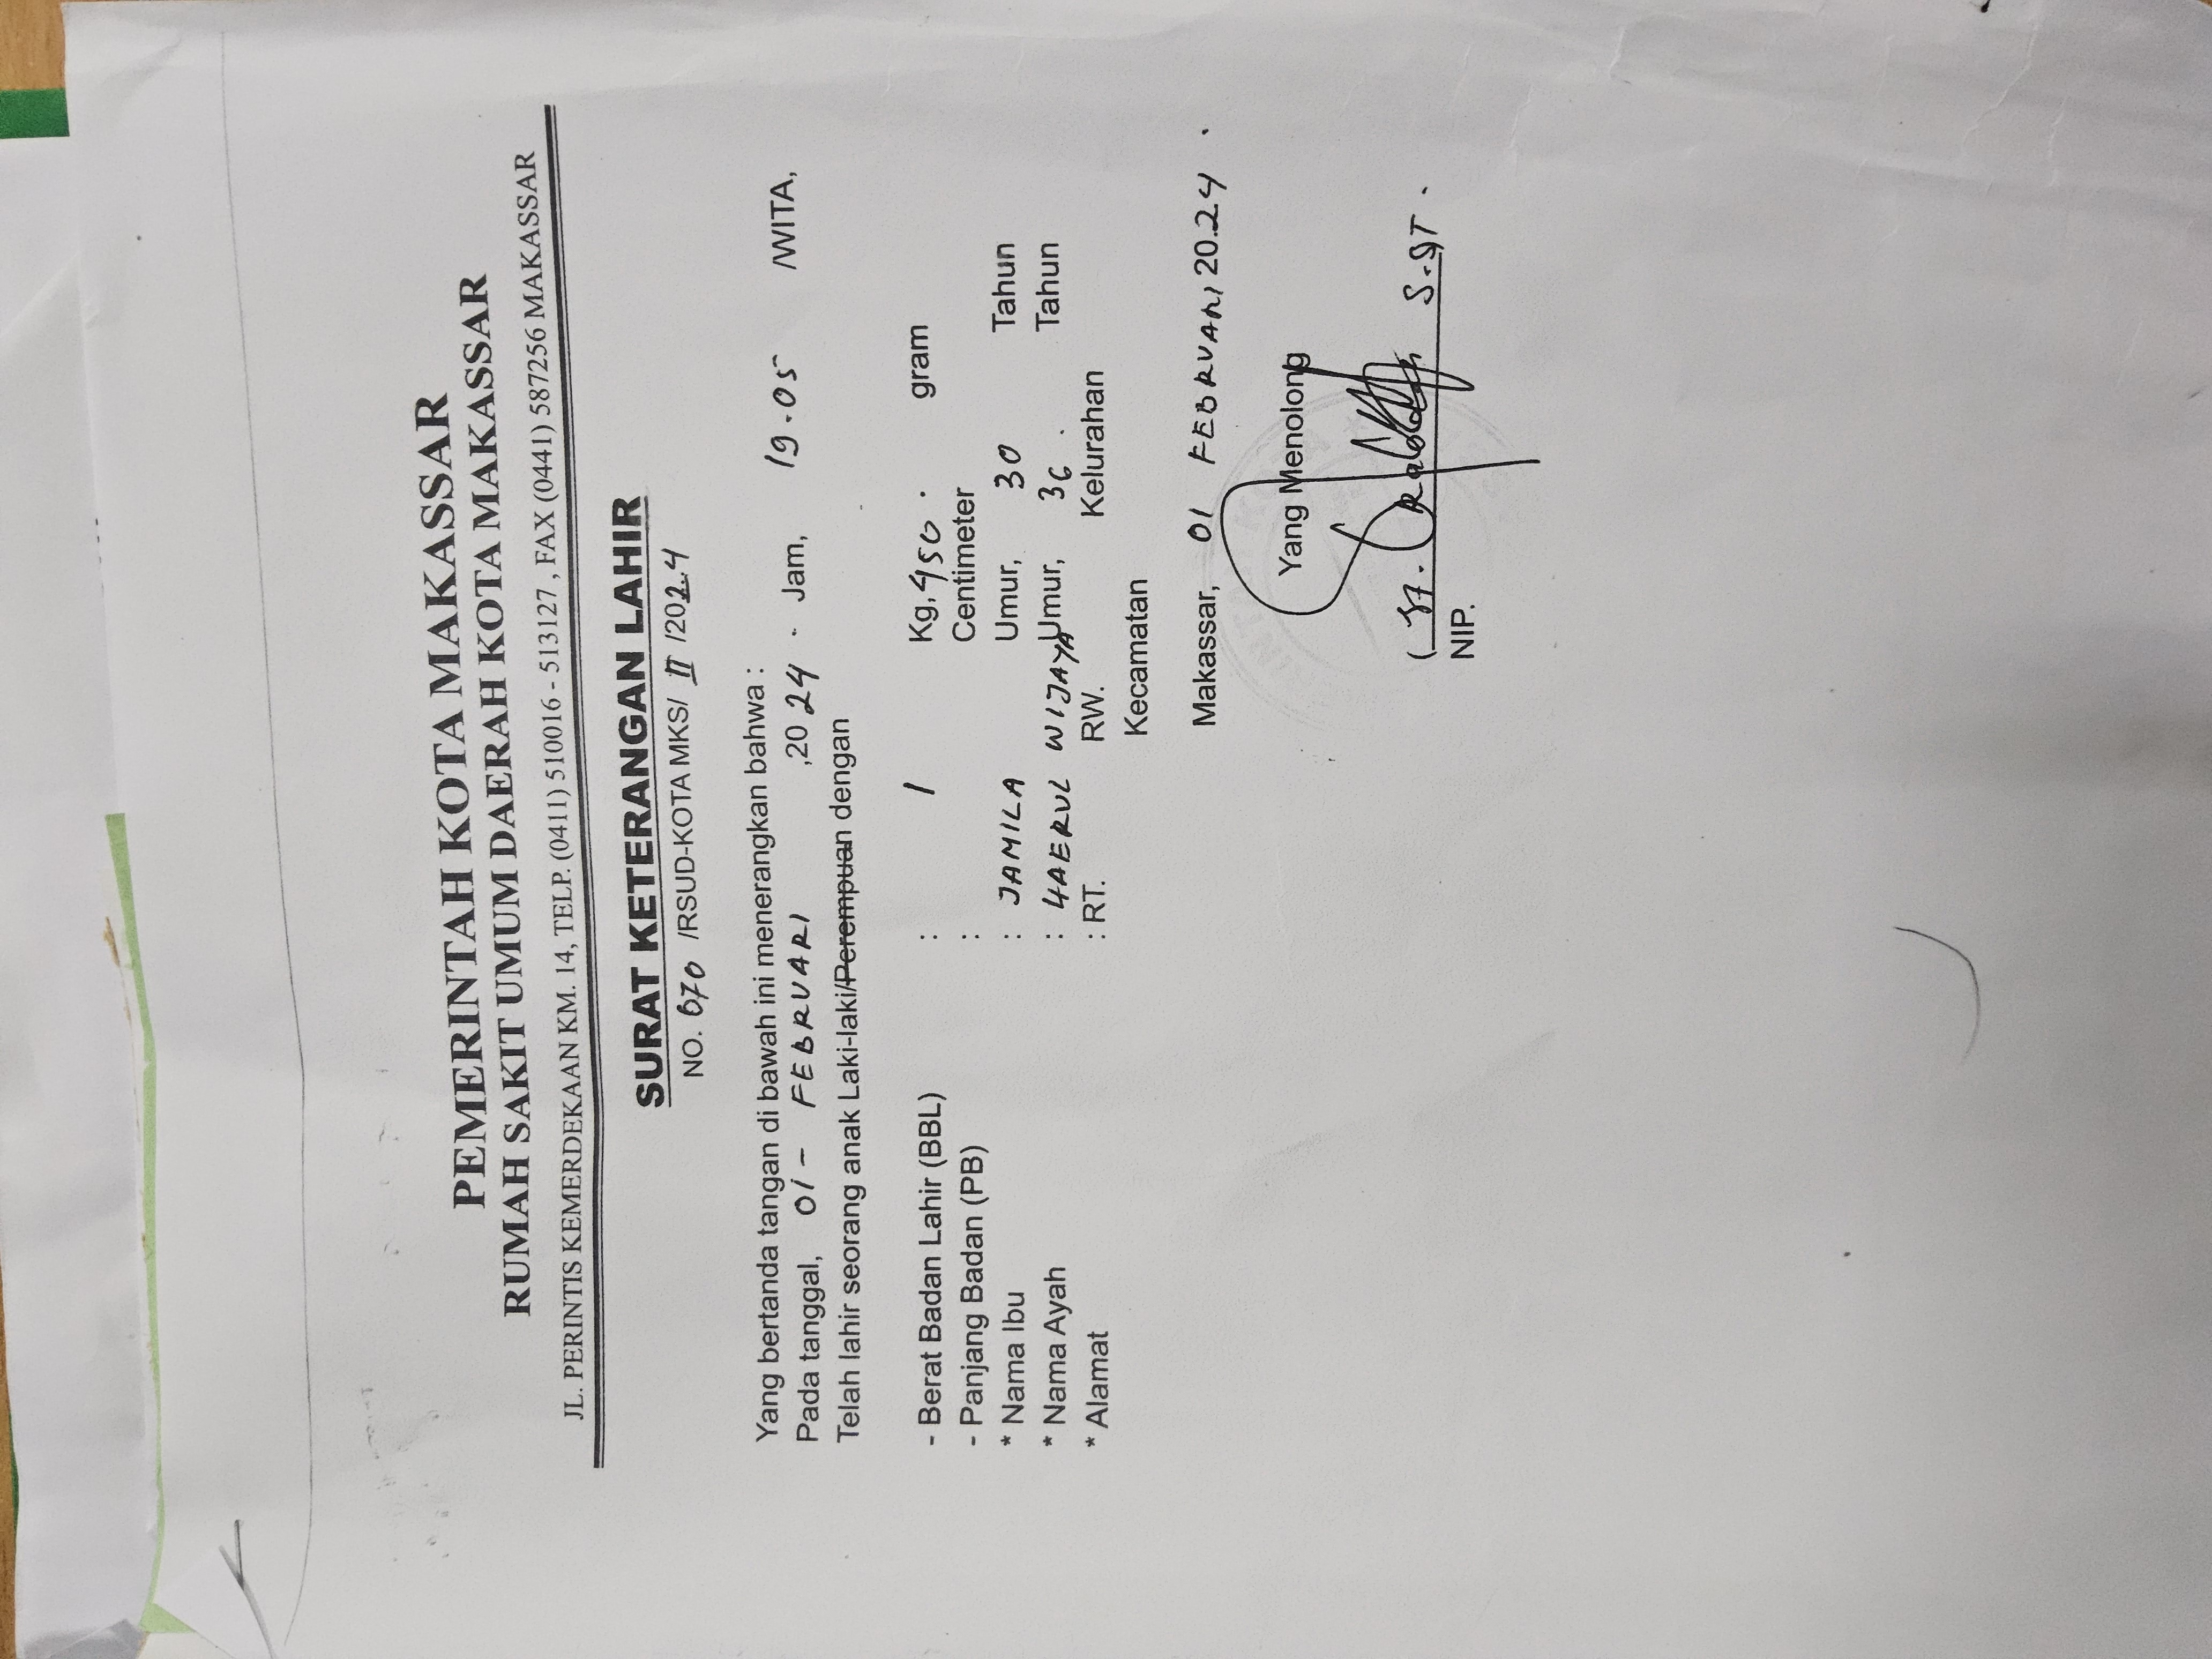 PEMERINTAH KOTA MAKASSAR
RUMAH SAKIT UMUM DAERAH KOTA MAKASSAR
JL. PERINTIS KEMERDEKAAN KM. 14, TELP. (0411) 510016 - 513127 , FAX (0441) 587256 MAKASSAR
SURAT KETERANGAN LAHIR
NO. 670 /RSUD-KOTA MKS/ II /2024
Yang bertanda tangan di bawah ini menerangkan bahwa :
Pada tanggal, 01 - FEBRUARI ,2024 . Jam, 19.05 /WITA,
Telah lahir seorang anak Laki-laki/Perempuan dengan
- Berat Badan Lahir (BBL) : 1 Kg, 450 . gram
- Panjang Badan (PB) : Centimeter
* Nama Ibu : JAMILA Umur, 30 Tahun
* Nama Ayah : HAERUL WIJAYA Umur, 36 . Tahun
* Alamat : RT. RW. Kelurahan
Kecamatan
Makassar, 01 FEBRUARI 20.24 .
Yang Menolong
( ST. S.ST .
NIP.